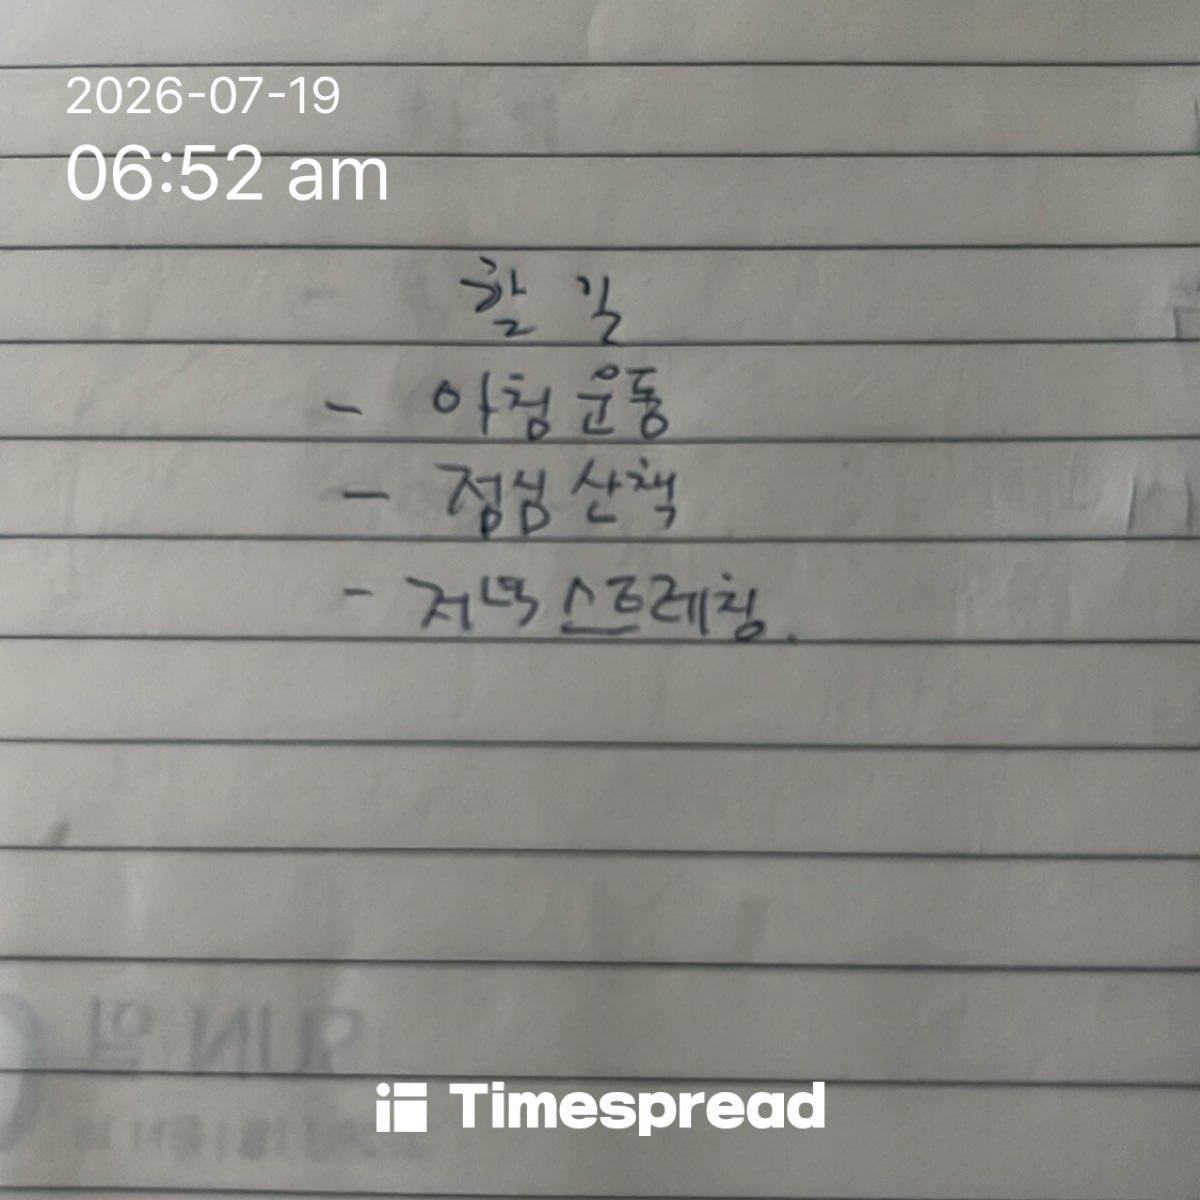 2026-07-19
06:52 am
할 일
- 아침 운동
- 점심 산책
- 저녁 스트레칭.
Timespread